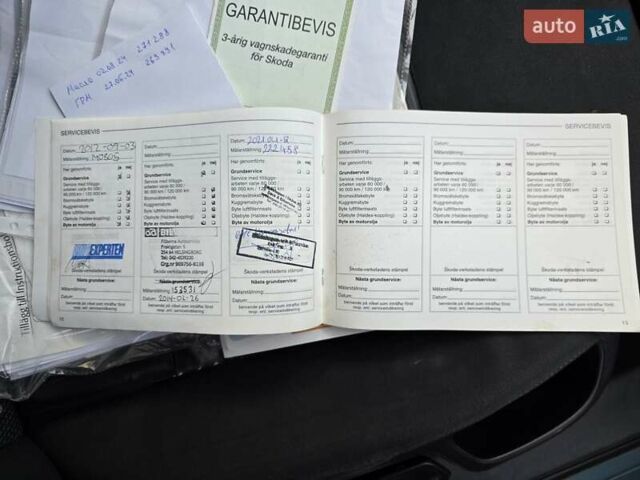 auto RIA
.com
GARANTIBEVIS
3-årig vagnskadegaranti
för Skoda
Масло 02.08.24 271 288
ГРМ 27.06.24 269 991
SERVICEBEVIS
Datum: 2012-09-03
Mätarställning:
Har genomförts: ja nej
Grundservice
Service med tilläggs-
arbeten varje 60 000 /
90 000 km / 120 000 km
Bromsvätskebyte
Kuggremsbyte
Byte luftfilterinsats
Oljebyte (Haldex-koppling)
Byte av motorolja
EXPERTEN
Skoda-verkstadens stämpel
Nästa grundservice:
Mätarställning:
Datum:
beroende på vilket som inträffar först
resp. enl. serviceindikering
10
Datum:
Mätarställning:
Har genomförts: ja nej
Grundservice
Service med tilläggs-
arbeten varje 60 000 /
90 000 km / 120 000 km
Bromsvätskebyte
Kuggremsbyte
Byte luftfilterinsats
Oljebyte (Haldex-koppling)
Byte av motorolja
BIL
254 64 HELSINGBORG
Org.nr 969756-8138
Skoda-verkstadens stämpel
Nästa grundservice:
Mätarställning: 153531
Datum: 2014-02-26
beroende på vilket som inträffar först
resp. enl. serviceindikering
Datum:
Mätarställning: 232 1458
Har genomförts: ja nej
Grundservice
Service med tilläggs-
arbeten varje 60 000 /
90 000 km / 120 000 km
Bromsvätskebyte
Kuggremsbyte
Byte luftfilterinsats
Oljebyte (Haldex-koppling)
Byte av motorolja
Skoda-verkstadens stämpel
Nästa grundservice:
Mätarställning:
Datum:
beroende på vilket som inträffar först
resp. enl. serviceindikering
SERVICEBEVIS
Datum:
Mätarställning:
Har genomförts: ja nej
Grundservice
Service med tilläggs-
arbeten varje 60 000 /
90 000 km / 120 000 km
Bromsvätskebyte
Kuggremsbyte
Byte luftfilterinsats
Oljebyte (Haldex-koppling)
Byte av motorolja
Skoda-verkstadens stämpel
Nästa grundservice:
Mätarställning:
Datum:
beroende på vilket som inträffar först
resp. enl. serviceindikering
Datum:
Mätarställning:
Har genomförts: ja nej
Grundservice
Service med tilläggs-
arbeten varje 60 000 /
90 000 km / 120 000 km
Bromsvätskebyte
Kuggremsbyte
Byte luftfilterinsats
Oljebyte (Haldex-koppling)
Byte av motorolja
Skoda-verkstadens stämpel
Nästa grundservice:
Mätarställning:
Datum:
beroende på vilket som inträffar först
resp. enl. serviceindikering
Datum:
Mätarställning:
Har genomförts: ja nej
Grundservice
Service med tilläggs-
arbeten varje 60 000 /
90 000 km / 120 000 km
Bromsvätskebyte
Kuggremsbyte
Byte luftfilterinsats
Oljebyte (Haldex-koppling)
Byte av motorolja
Skoda-verkstadens stämpel
Nästa grundservice:
Mätarställning:
Datum:
beroende på vilket som inträffar först
resp. enl. serviceindikering
Tillägg till instruktionsbok